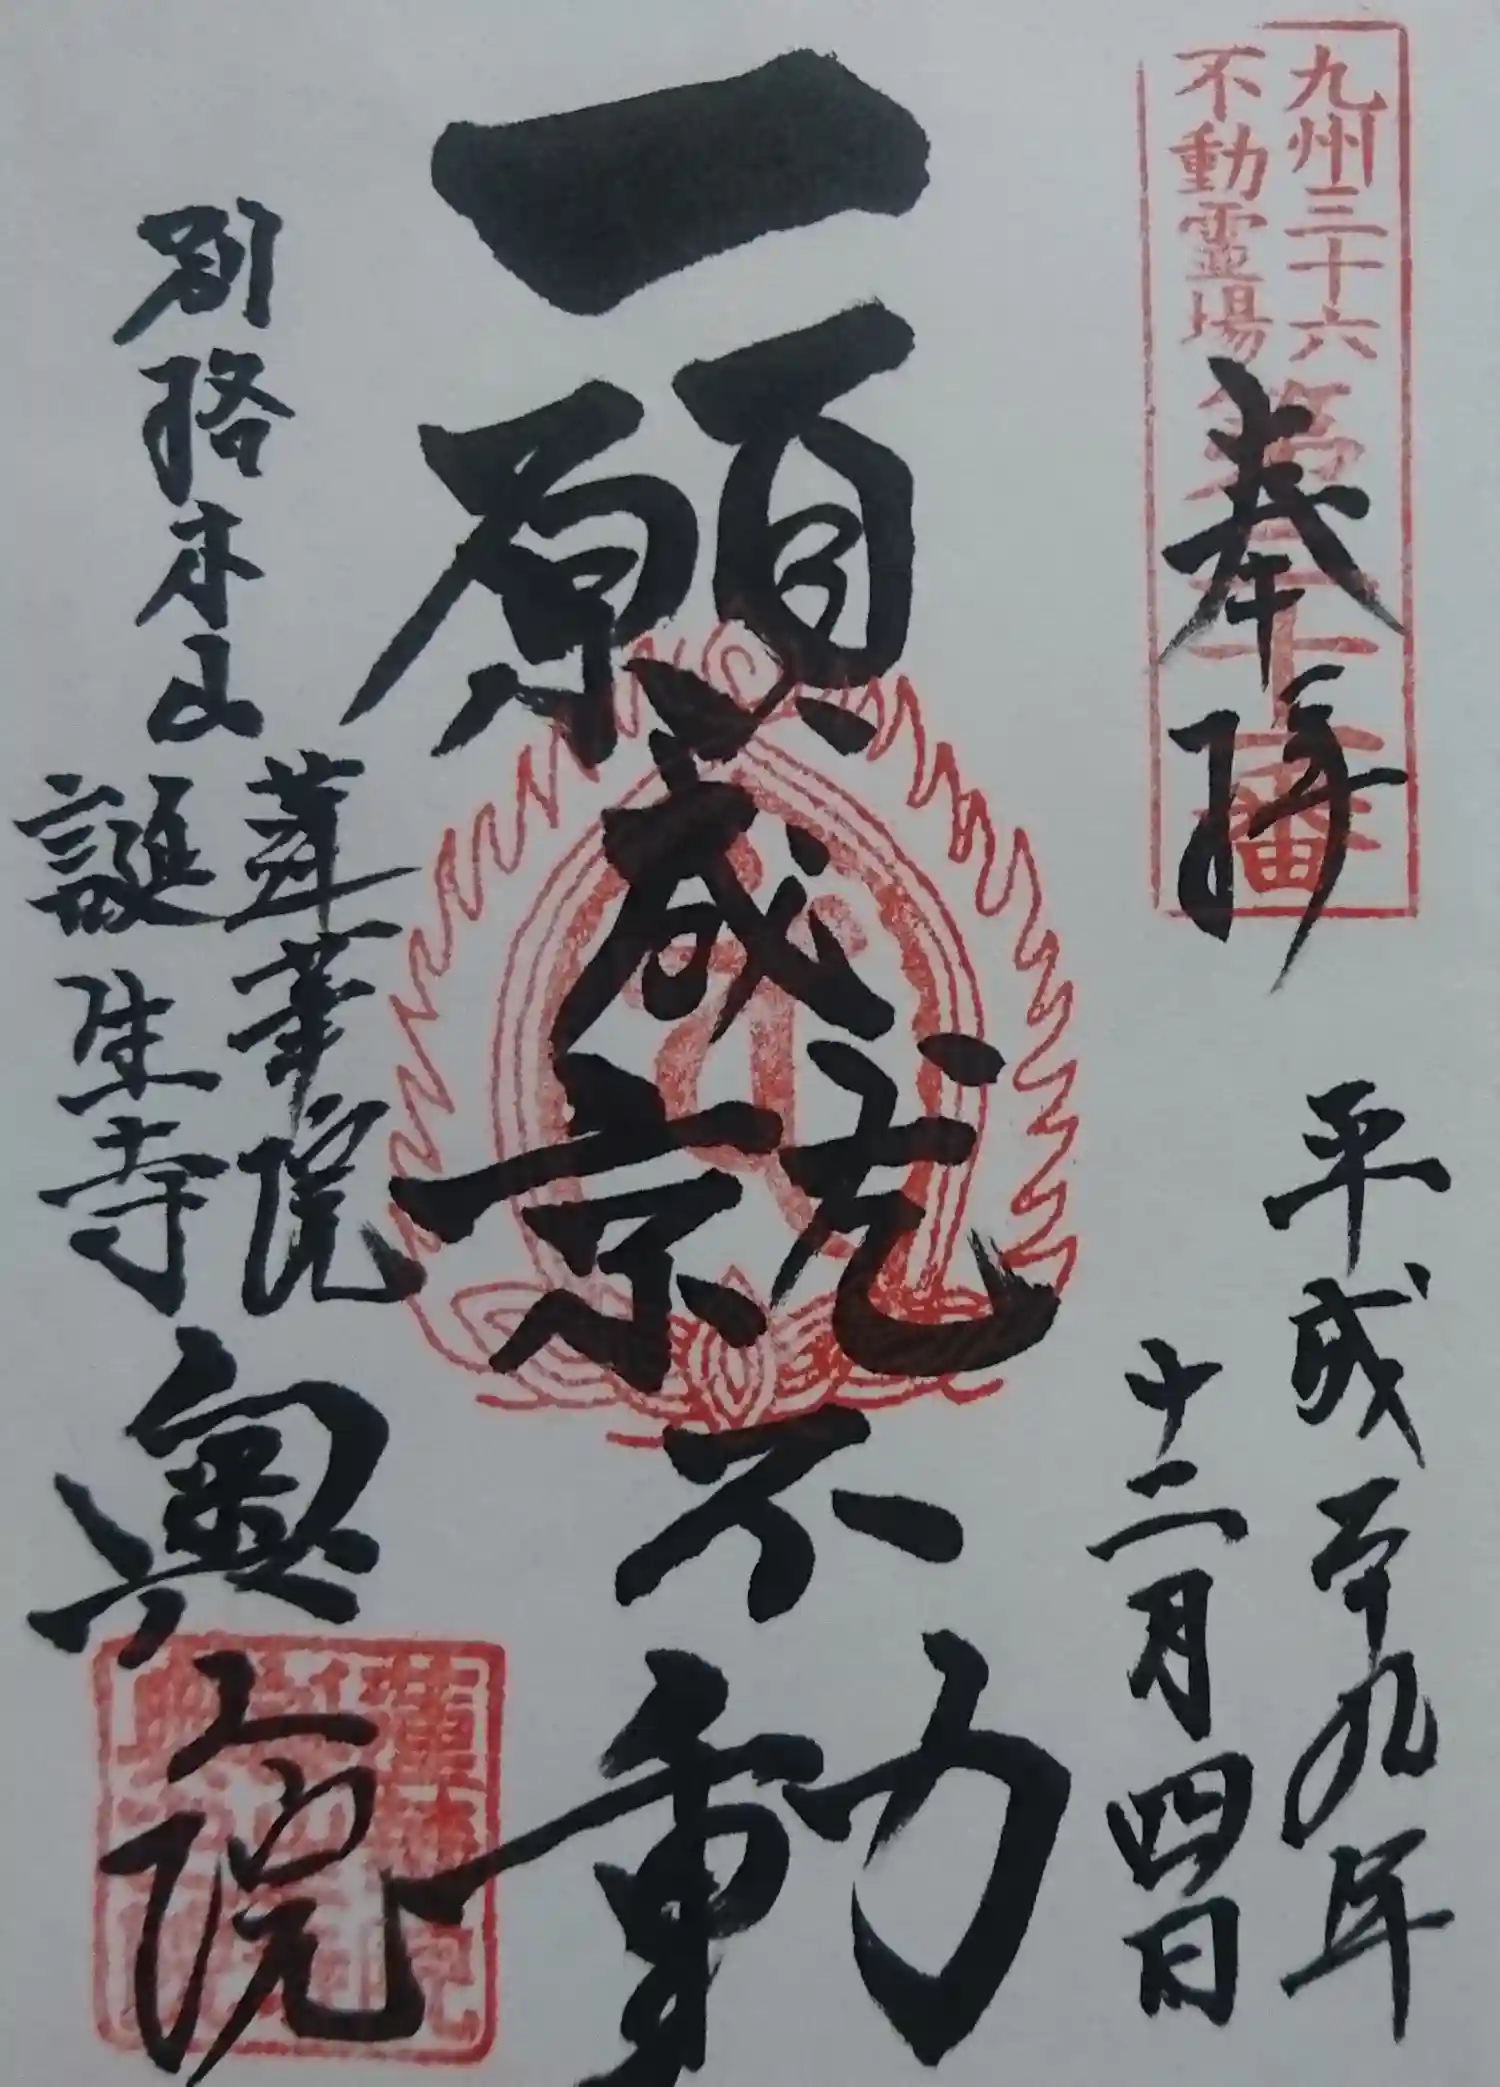 九州三十六
不動霊場
奉拝
平成二十九年
十二月四日
一願成就不動
別格本山
蓮華院
誕生寺
奥之院